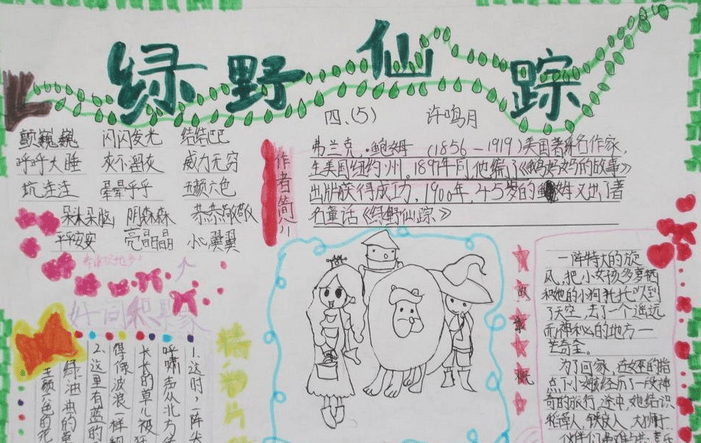 绿野仙踪
四、(5) 许鸣月
颤巍巍 闪闪发光 结结巴巴
呼呼大睡 灰不溜灰 威力无穷
坑洼洼 晕晕乎乎 五颜六色
呆头呆脑 阴森森 恭恭敬敬
平平安安 亮晶晶 小心翼翼
好词积累家
作者简介
弗兰克·鲍姆 (1856-1919)美国著名作家,
生美国纽约州,1897年间,他编了《鹅妈妈的故事》
出版获得成功,1900年,45岁的鲍姆又出了著
名童话《绿野仙踪》
故事
一阵特大的旋
风,把小女孩多萝茜
和她的小狗托托吹到
了天空,去了一个遥远
而神秘的地方—
芒奇金。
为了回家,在女巫的指
点下,小女孩经历了一段神
奇的旅行,途中,她结识
稻草人、铁皮人、大狮子
精彩片段
1.这时,一阵尖
呼啸声从北方
长长的草儿被
得像波浪一样
2.这里有蓝的
绿油油的草
五颜六色的花